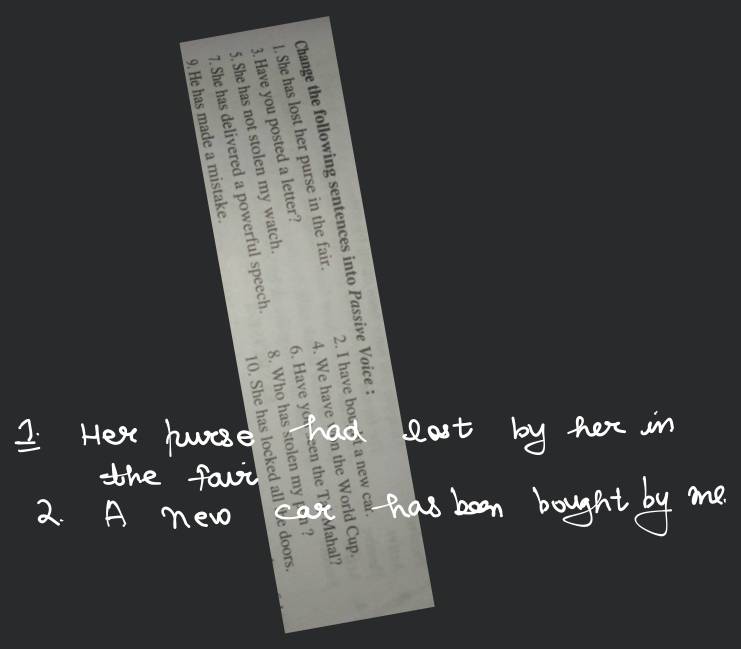 Change the following sentences into Passive Voice :
1. She has lost her purse in the fair.
2. I have a new car.
3. Have you posted a letter?
4. We have the World Cup.
5. She has not stolen my watch.
6. Have the Mahal?
7. She has delivered a powerful speech.
8. Who has stolen my ?
9. He has made a mistake.
10. She has locked all doors.
1. Her purse had lost by her in
the fair
2. A new car has been bought by me.